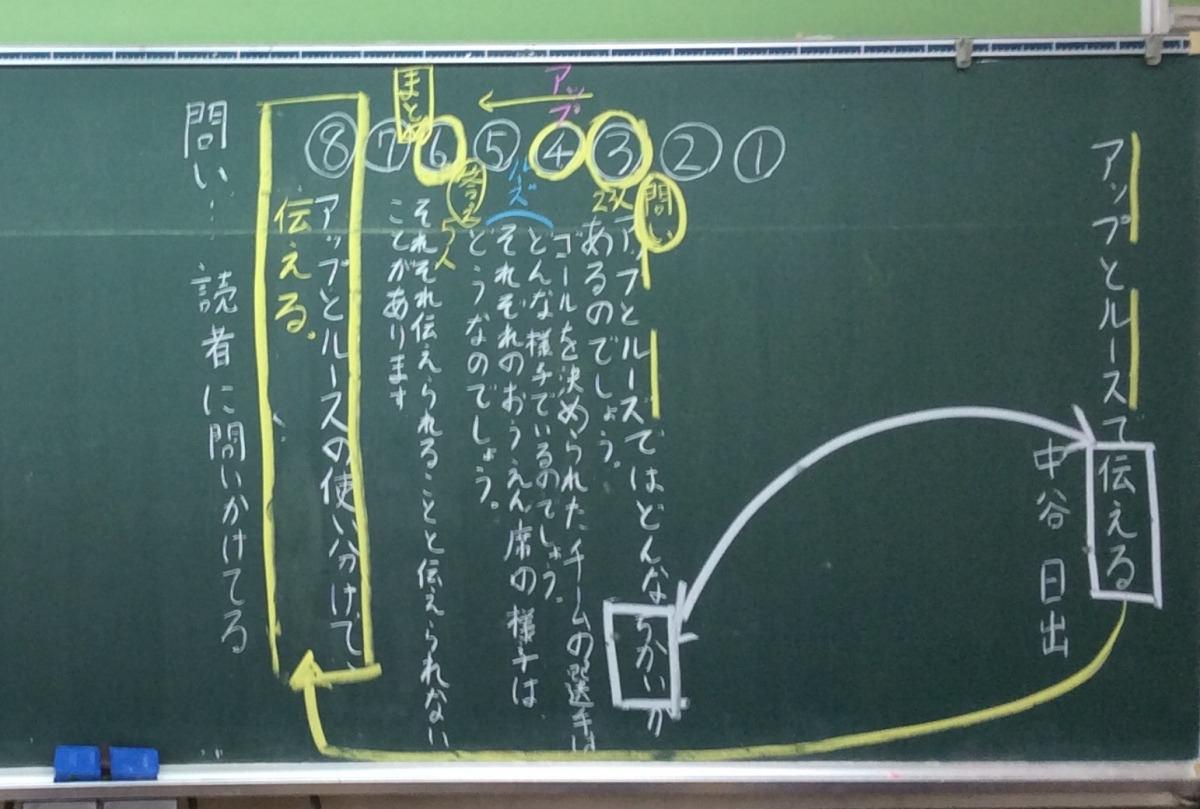 アップとルーズで伝える
中谷 日出
①
②
③
④
⑤
⑥
⑦
⑧
アップ
ルーズ
まとめ
問い
アップとルーズではどんなちがいが
あるのでしょう。
ゴールを決められたチームの選手は
どんな様子でいるのでしょう。
それぞれのおうえん席の様子は
どうなのでしょう。
答え
それぞれ伝えられることと伝えられない
ことがあります
アップとルーズの使い分けて、
伝える。
問い… 読者に問いかけてる